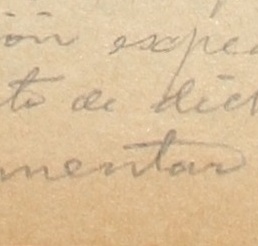 ión expe
to de dich
mentar